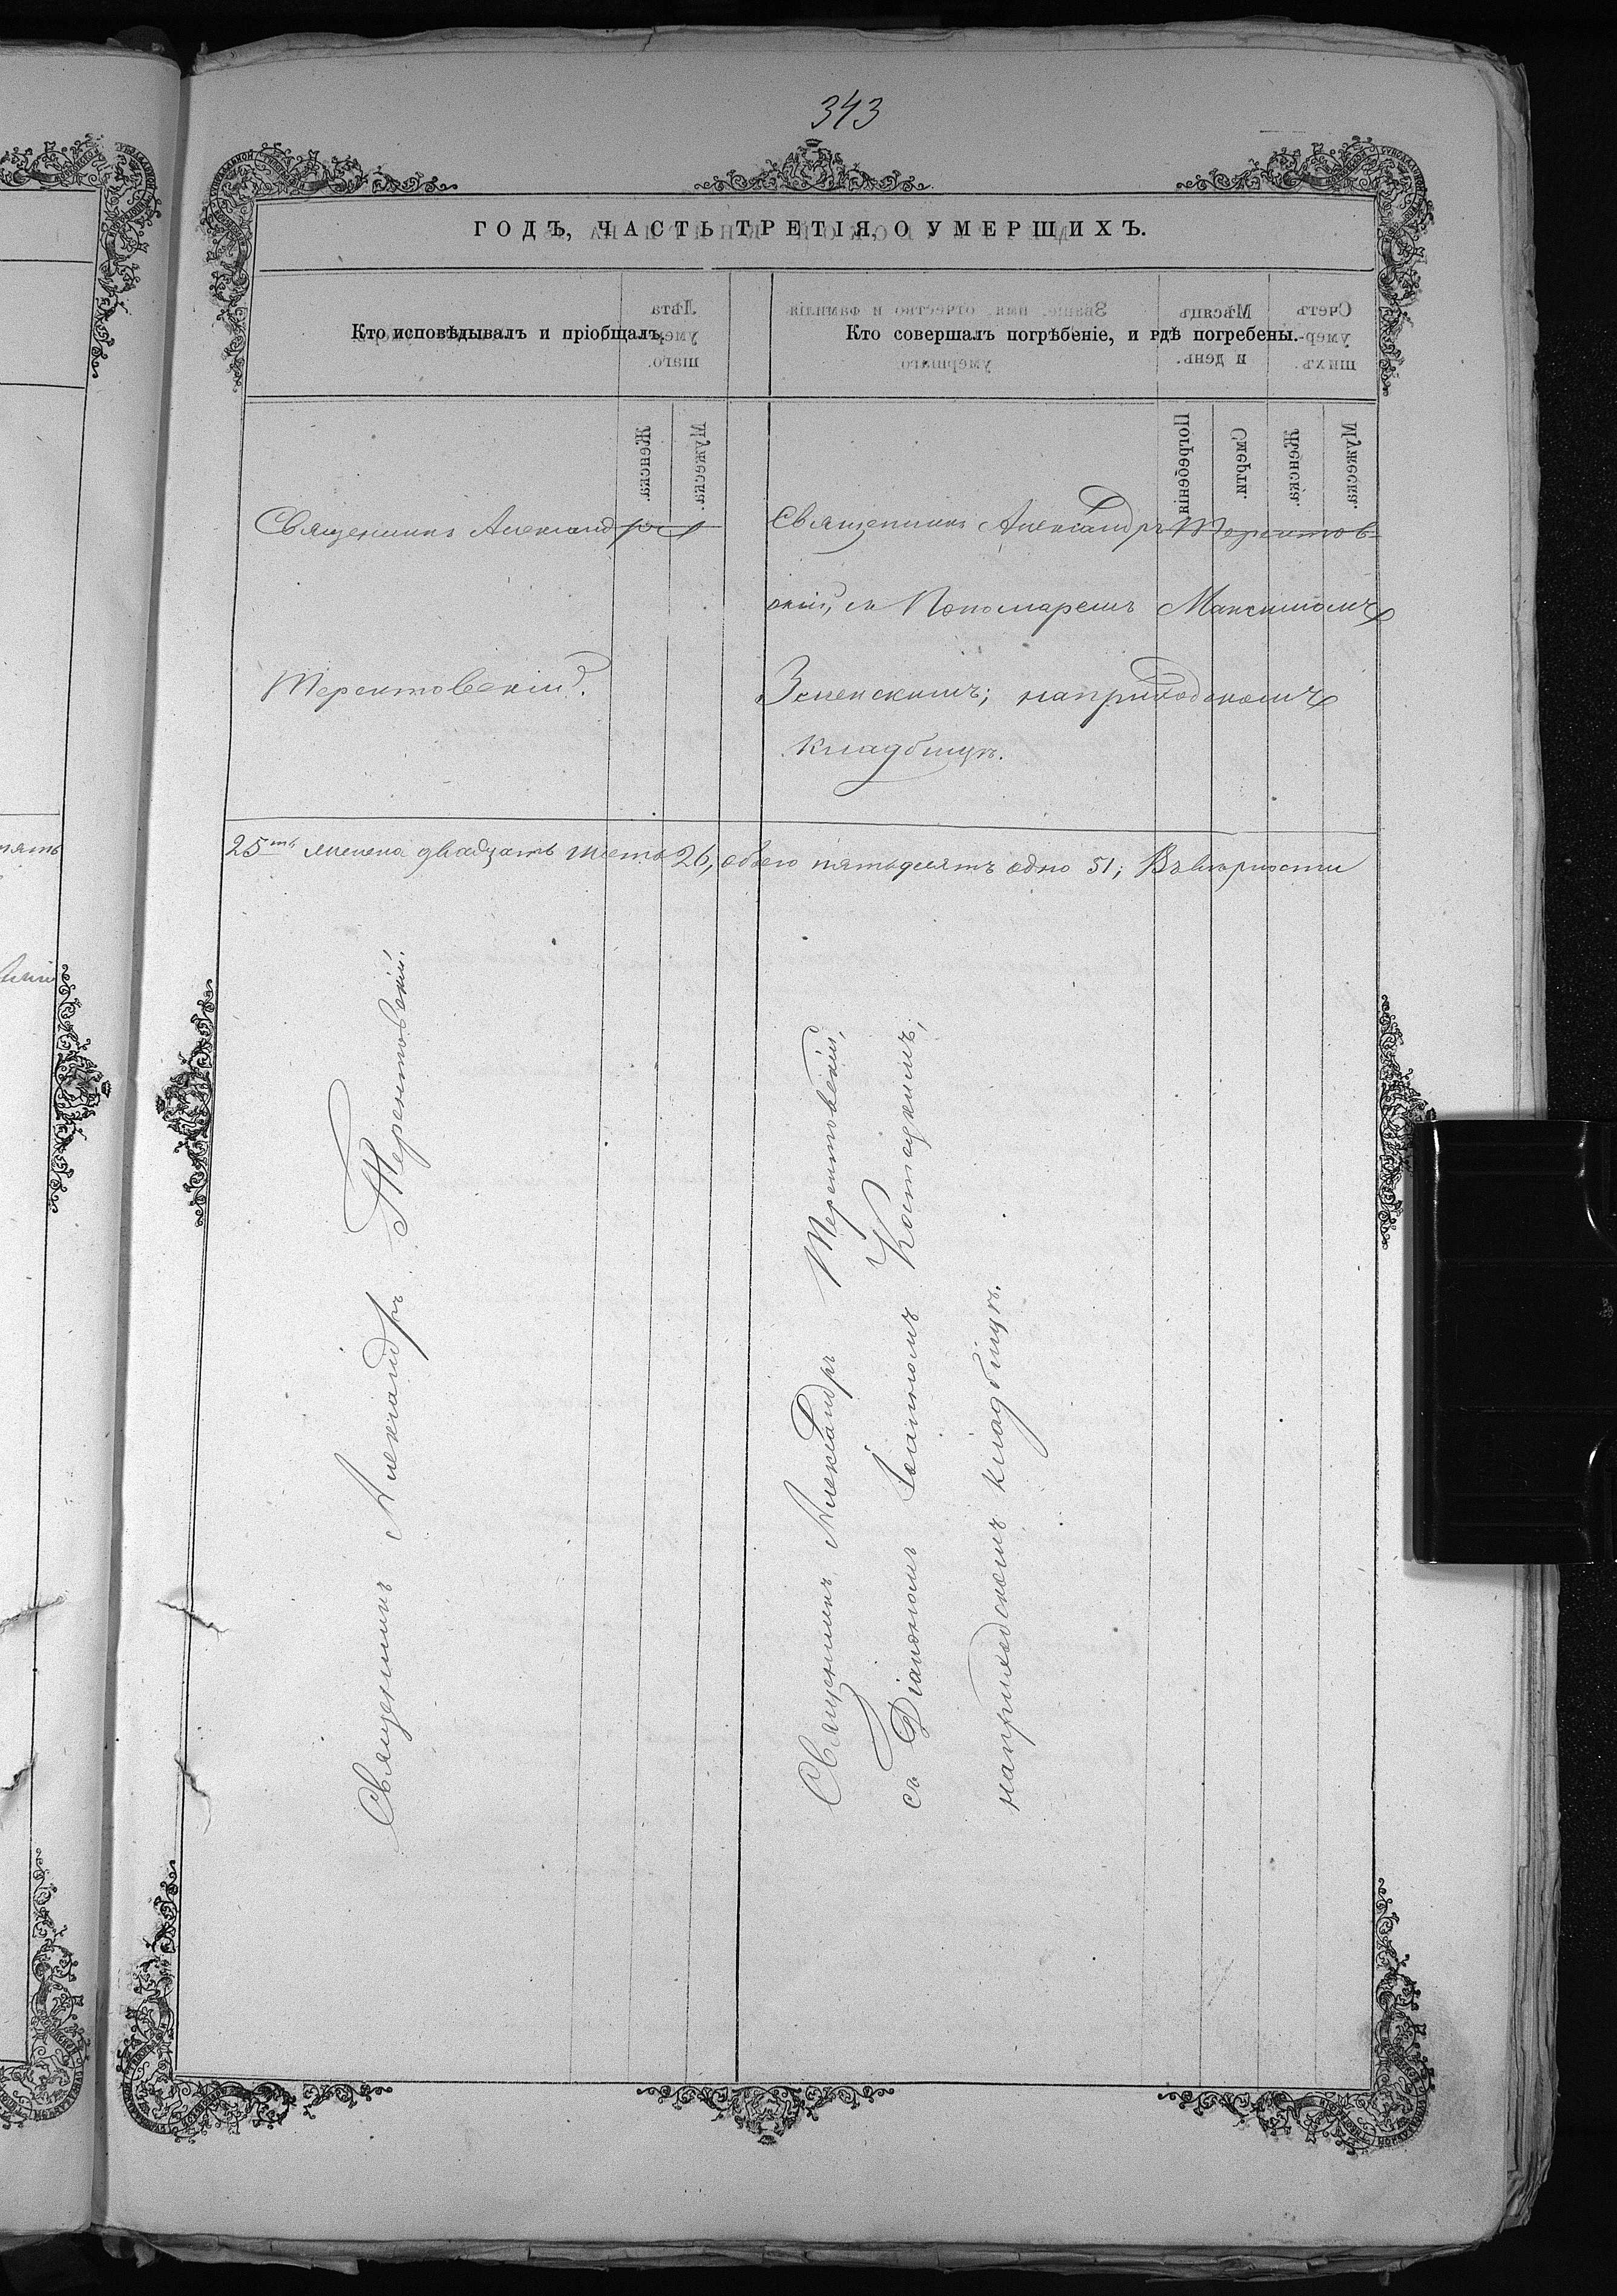 343
ГОДЪ, ЧАСТЬ ТРЕТІЯ, О УМЕРШИХЪ.
Кто исповѣдывалъ и пріобщалъ.
Кто совершалъ погрѣбеніе, и гдѣ погребены.
Священникъ Александръ
Терентовскій.
Священникъ Александръ Терентов-
скій, съ Пономаремъ Максимомъ
Зеленскимъ; наприходскомъ
кладбищѣ.
25ть женска двадцать шесть 26, обоего пятьдесятъ одно 51; Въ вѣрности
Священникъ Александръ Терентовскій.
Священникъ Александръ Терентовскій,
съ Діакономъ Іоанномъ
наприходскомъ кладбищѣ.